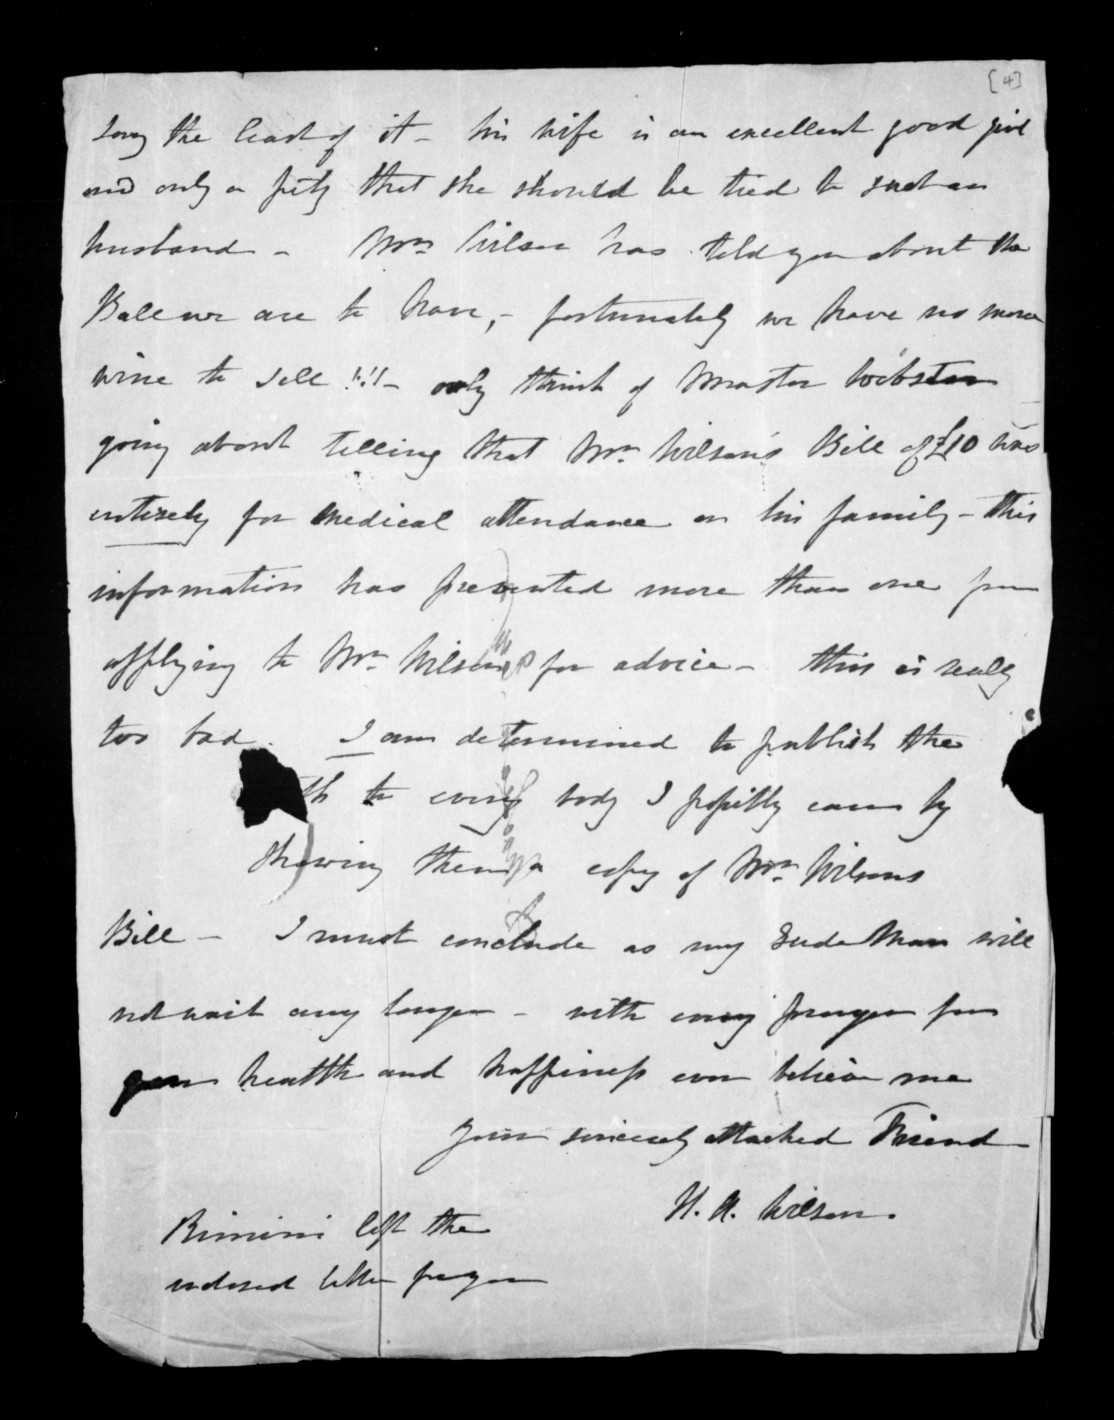 [4]
say the least of it - his wife is an excellent good girl
and only a pity that she should be tied to such an
husband - Mrs. Wilson has told you about the
Ball we are to have, - fortunately we have no more
wine to sell !!! - only think of Master Webster
going about telling that Mr. Wilson's Bill of £10 was
entirely for medical attendance on his family - this
information has prevented more than one from
applying to Mr. Wilson for advice - this is really
too bad. I am determined to publish the
th to every body I possibly can by
shewing them a copy of Mr. Wilsons
Bill - I must conclude as my man will
not wait any longer - with every prayer for
your health and happiness ever believe me
your sincerely attached Friend
H. H. Wilson.
Rimini left the
enclosed letter for you